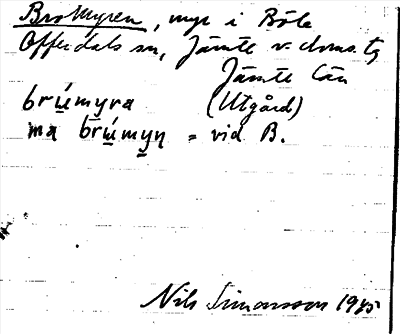 Bromyren, myr i Böle
Offerdals sn, Jämtl v. doms. tg
Jämtl. län
brúmyra (Utgård)
ma brúmyn = vid B.
Nils Simonsson 1945